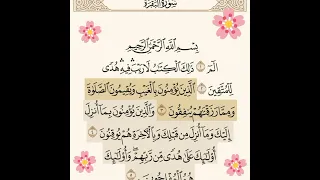 سُورَةُ البَقَرَةِ
بِسْمِ ٱللَّهِ ٱلرَّحْمَٰنِ ٱلرَّحِيمِ
الٓمٓ ذَٰلِكَ ٱلْكِتَٰبُ لَا رَيْبَ ۛ فِيهِ ۛ هُدًى
لِّلْمُتَّقِينَ ٱلَّذِينَ يُؤْمِنُونَ بِٱلْغَيْبِ وَيُقِيمُونَ ٱلصَّلَوٰةَ
وَمِمَّا رَزَقْنَٰهُمْ يُنفِقُونَ وَٱلَّذِينَ يُؤْمِنُونَ بِمَآ أُنزِلَ
إِلَيْكَ وَمَآ أُنزِلَ مِن قَبْلِكَ وَبِٱلْءَاخِرَةِ هُمْ يُوقِنُونَ
أُو۟لَٰٓئِكَ عَلَىٰ هُدًى مِّن رَّبِّهِمْ ۖ وَأُو۟لَٰٓئِكَ
هُمُ ٱلْمُفْلِحُونَ